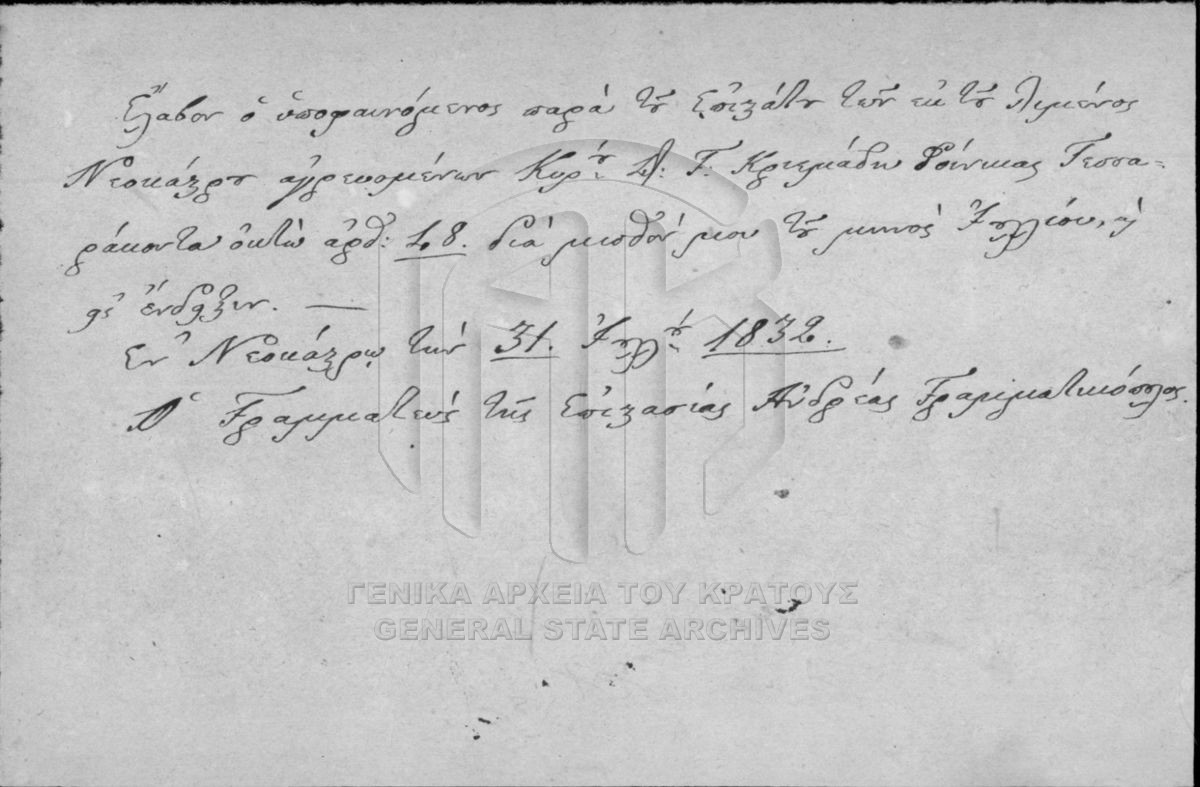 Ἔλαβον ὁ ὑποφαινόμενος παρὰ τοῦ Ἐπιστάτου τῶν ἐκ τοῦ Λιμένος
Νεοκάστρου ἀγρευομένων Κυρίου Δ: Γ. Φοίνικας Τεσσα=
ράκοντα ὀκτὼ ἀρθ: 48. διὰ μισθόν μου τοῦ μηνὸς Ἰουλίου, κ
εἰς ἔνδειξιν. —
Ἐν Νεοκάστρῳ τὴν 31. Ἰουλίου 1832.
Ὁ Γραμματεὺς τῆς Ἐπιστασίας Ἀνδρέας Γραμματικόπουλος.
ΓΕΝΙΚΑ ΑΡΧΕΙΑ ΤΟΥ ΚΡΑΤΟΥΣ
GENERAL STATE ARCHIVES